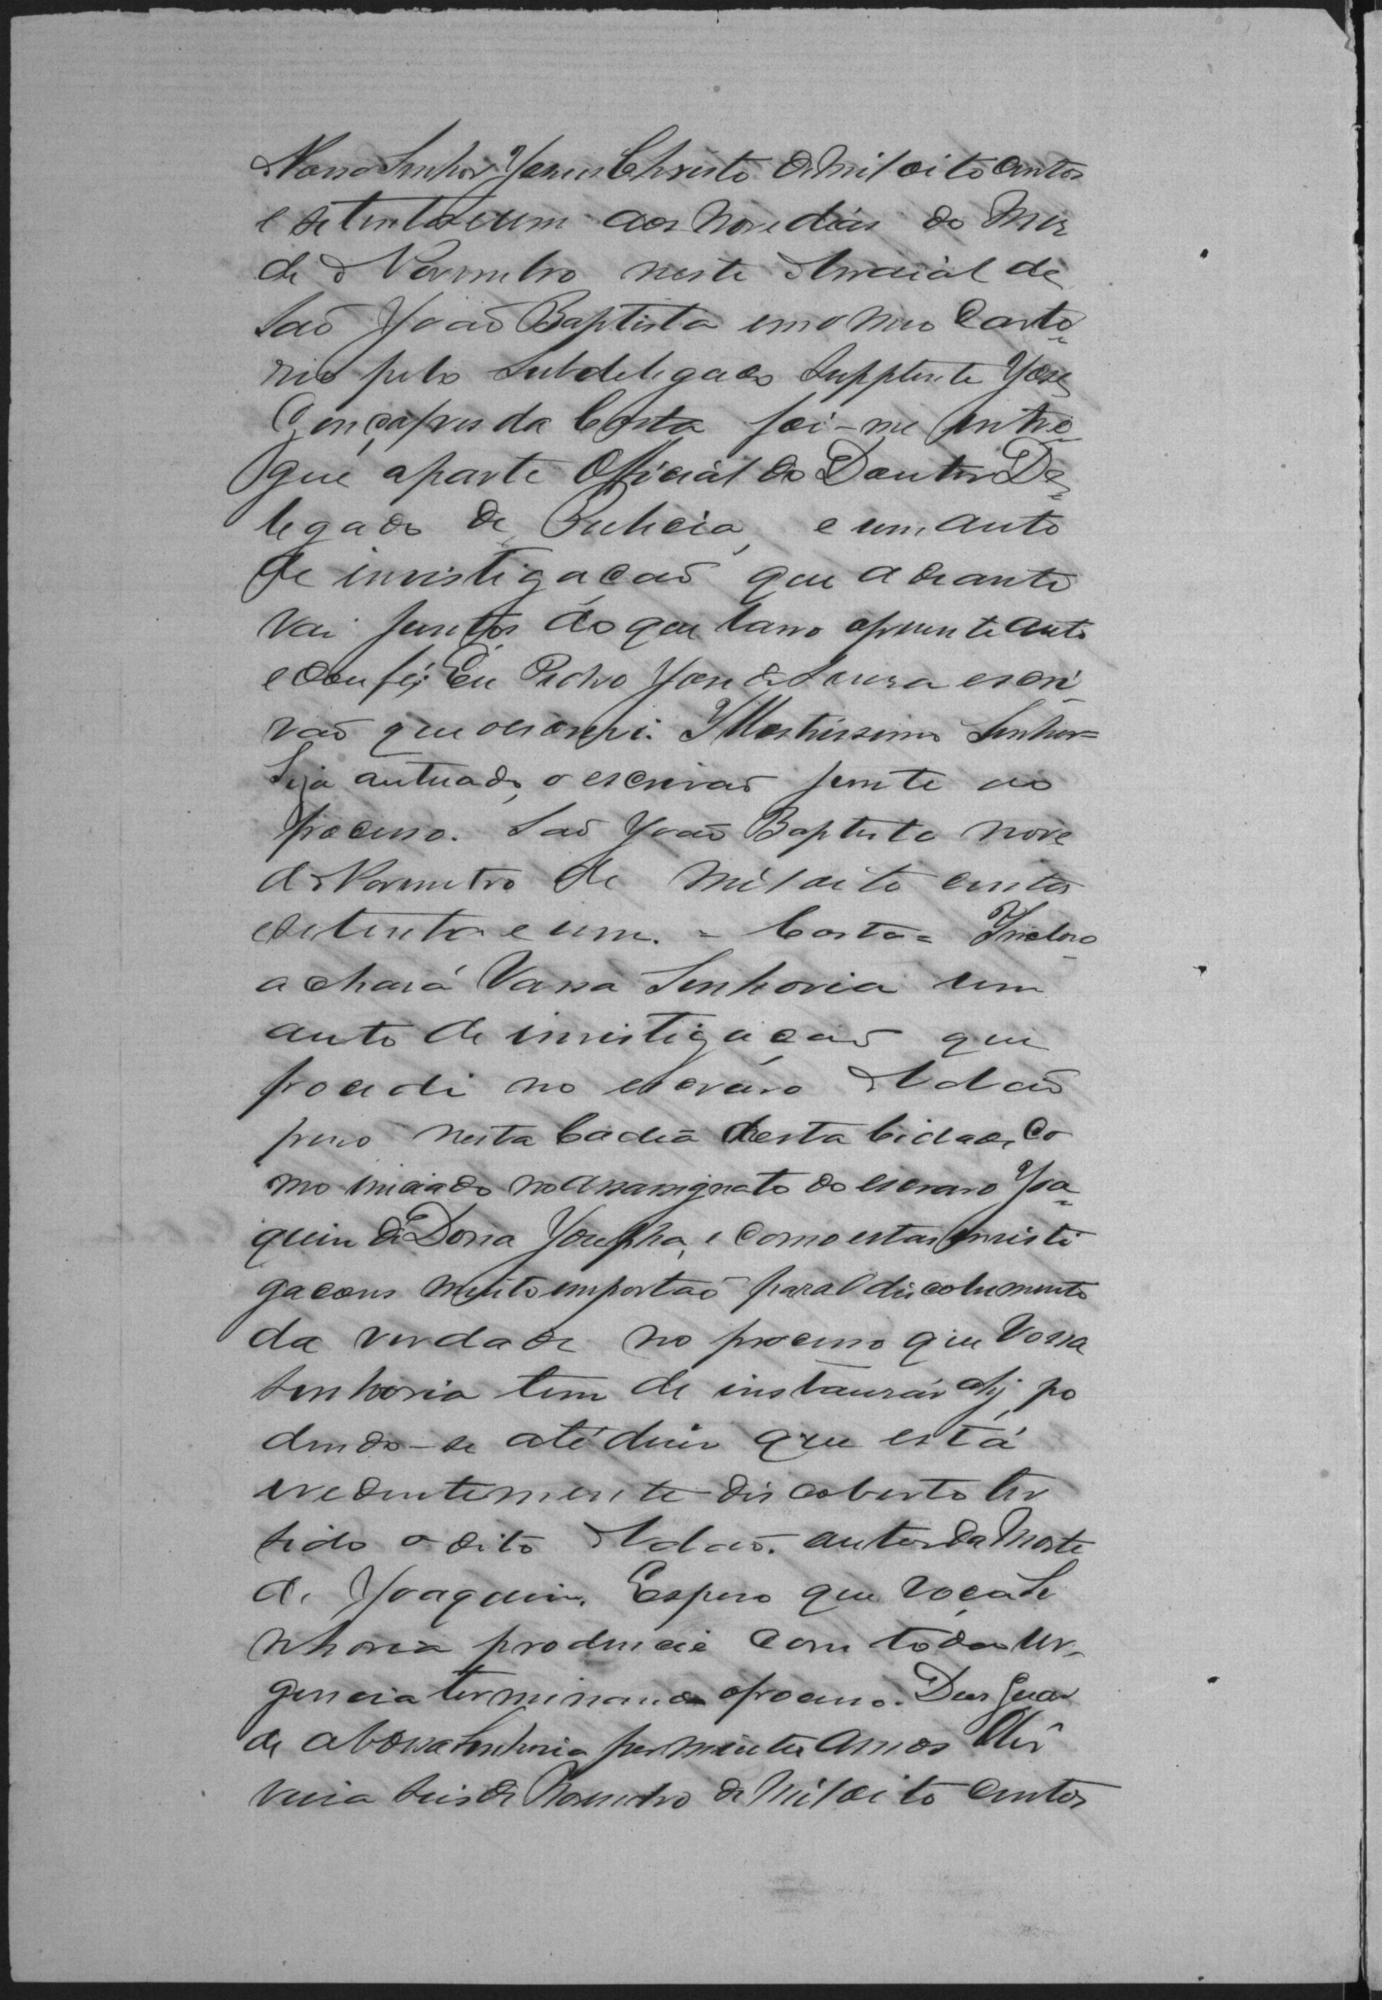 Nosso Senhor Jesus Christo de mil oito centos
e setenta e um aos nove dias do mez
de Novembro neste Arraial de
São João Baptista em o meo Carto-
rio pelo Subdelegado Supplente José
Gonçalves da Costa foi-me entre-
gue a parte Official do Doutor De-
legado de Pulicia, e um auto
de investigacão que adeante
vai juntos do que lavro o presente auto
e dou fé; Eu Pedro José de Souza escri-
vão que o escrevi. Illustrissimo Senhor=
Seja autuado, o escrivão junte ao
processo. São João Baptista nove
de Novembro de mil oito centos
e setenta e um. = Costa = Incluso
achará Vossa Senhoria um
auto de investigacão que
procedi no escravo Adão
preso nesta Cadea desta Cidade, co
mo iniciado no assassignato do escravo Joa-
quim de Dona Josepha, e como estas investi
gacoens muito importão para o discobrimento
da verdade no processo que Vossa
Senhoria tem de instaurar ahj, po
dendo-se até dizer que está
evedentemente discoberto ter
sido o dito Adão autor da Morte
de Joaquim. Espero que Voça Se
nhoria produncie com toda ur-
gencia terminando o processo. Deos Guar
de a Vossa Senhoria por muitos Annos Oli
veira seis de Novembro de mil oito centos